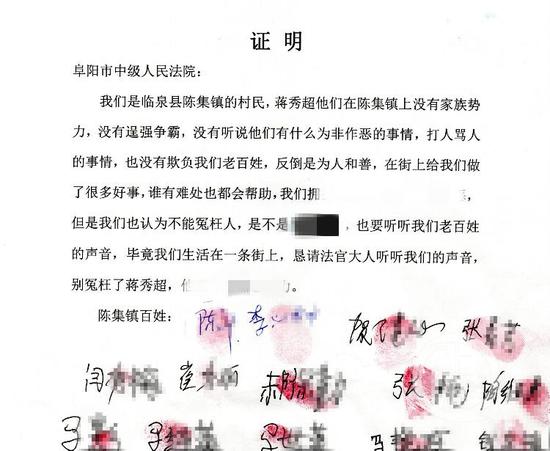 证 明
阜阳市中级人民法院：
我们是临泉县陈集镇的村民，蒋秀超他们在陈集镇上没有家族势
力，没有逞强争霸，没有听说他们有什么为非作恶的事情，打人骂人
的事情，也没有欺负我们老百姓，反倒是为人和善，在街上给我们做
了很多好事，谁有难处也都会帮助，我们拥
但是我们也认为不能冤枉人，是不是 ，也要听听我们老百姓
的声音，毕竟我们生活在一条街上，恳请法官大人听听我们的声音，
别冤枉了蒋秀超，
陈集镇百姓： 陈 李 张
闫 崔 张